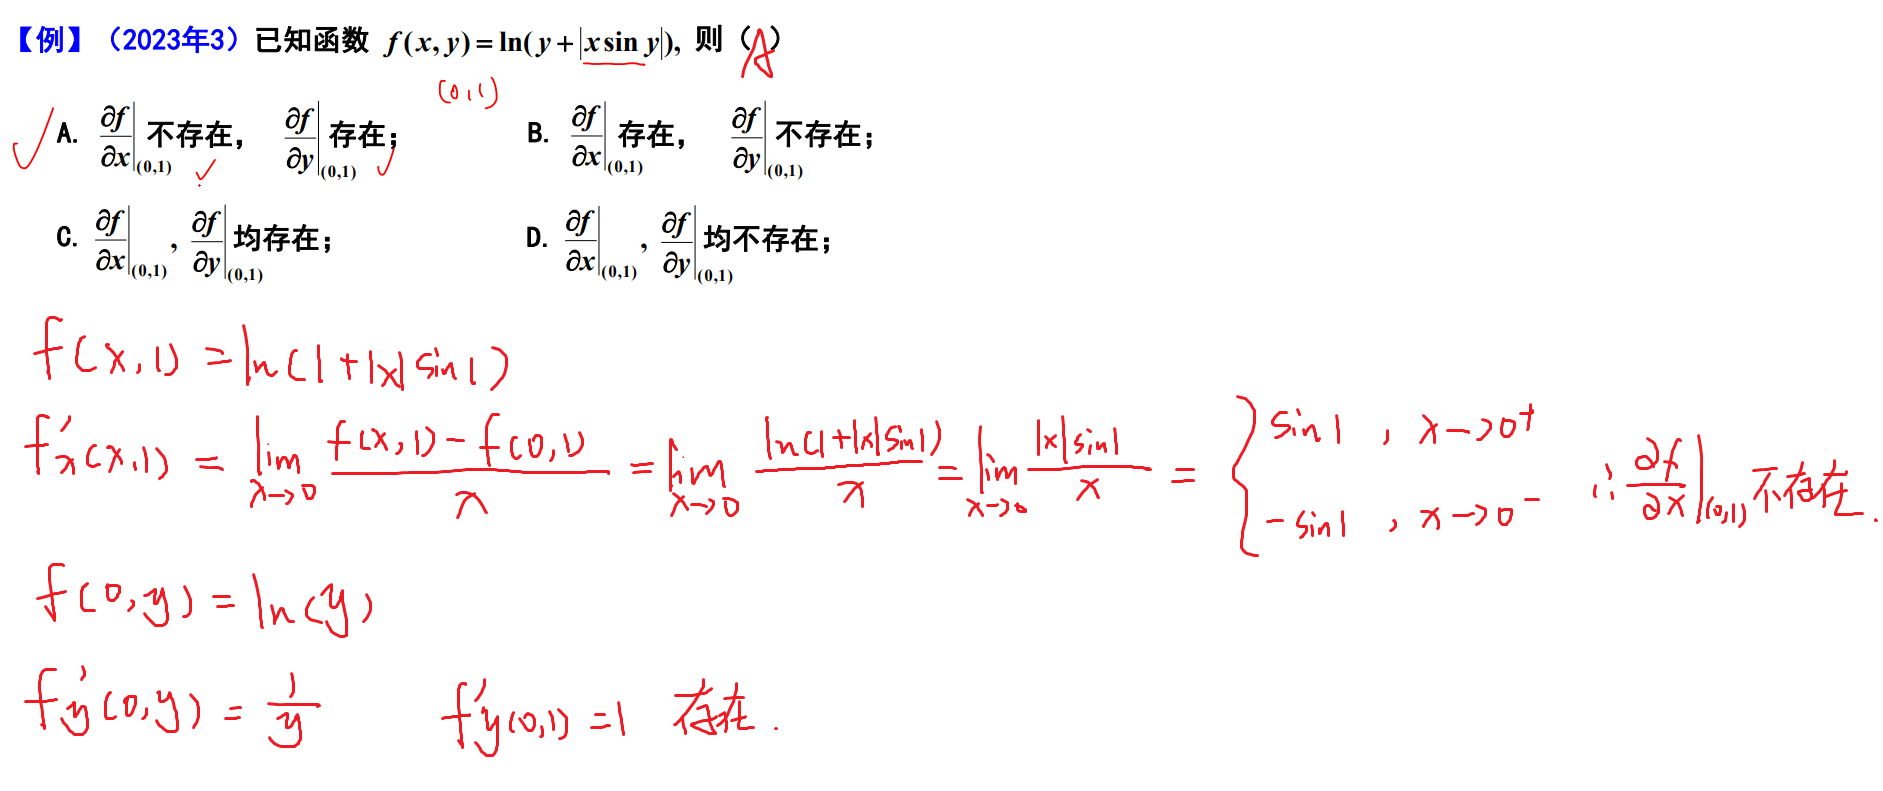 【例】（2023年3）已知函数 f(x,y)=ln(y+|x sin y|), 则（A）
(0,1)
A. ∂f/∂x|(0,1) 不存在， ∂f/∂y|(0,1) 存在； B. ∂f/∂x|(0,1) 存在， ∂f/∂y|(0,1) 不存在；
C. ∂f/∂x|(0,1) , ∂f/∂y|(0,1) 均存在； D. ∂f/∂x|(0,1) , ∂f/∂y|(0,1) 均不存在；
f(x,1)=ln(1+|x|sin1)
f'x(x,1) = lim x→0 (f(x,1)-f(0,1))/x = lim x→0 ln(1+|x|sin1)/x = lim x→0 |x|sin1/x = { sin1 , x→0⁺ -sin1 , x→0⁻ ∴ ∂f/∂x|(0,1) 不存在.
f(0,y)=ln(y)
f'y(0,y)=1/y f'y(0,1)=1 存在.